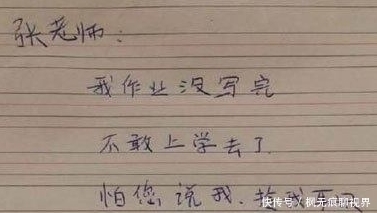 张老师:
我作业没写完
不敢上学去了
怕您说我.
快传号/枫无痕聊视界